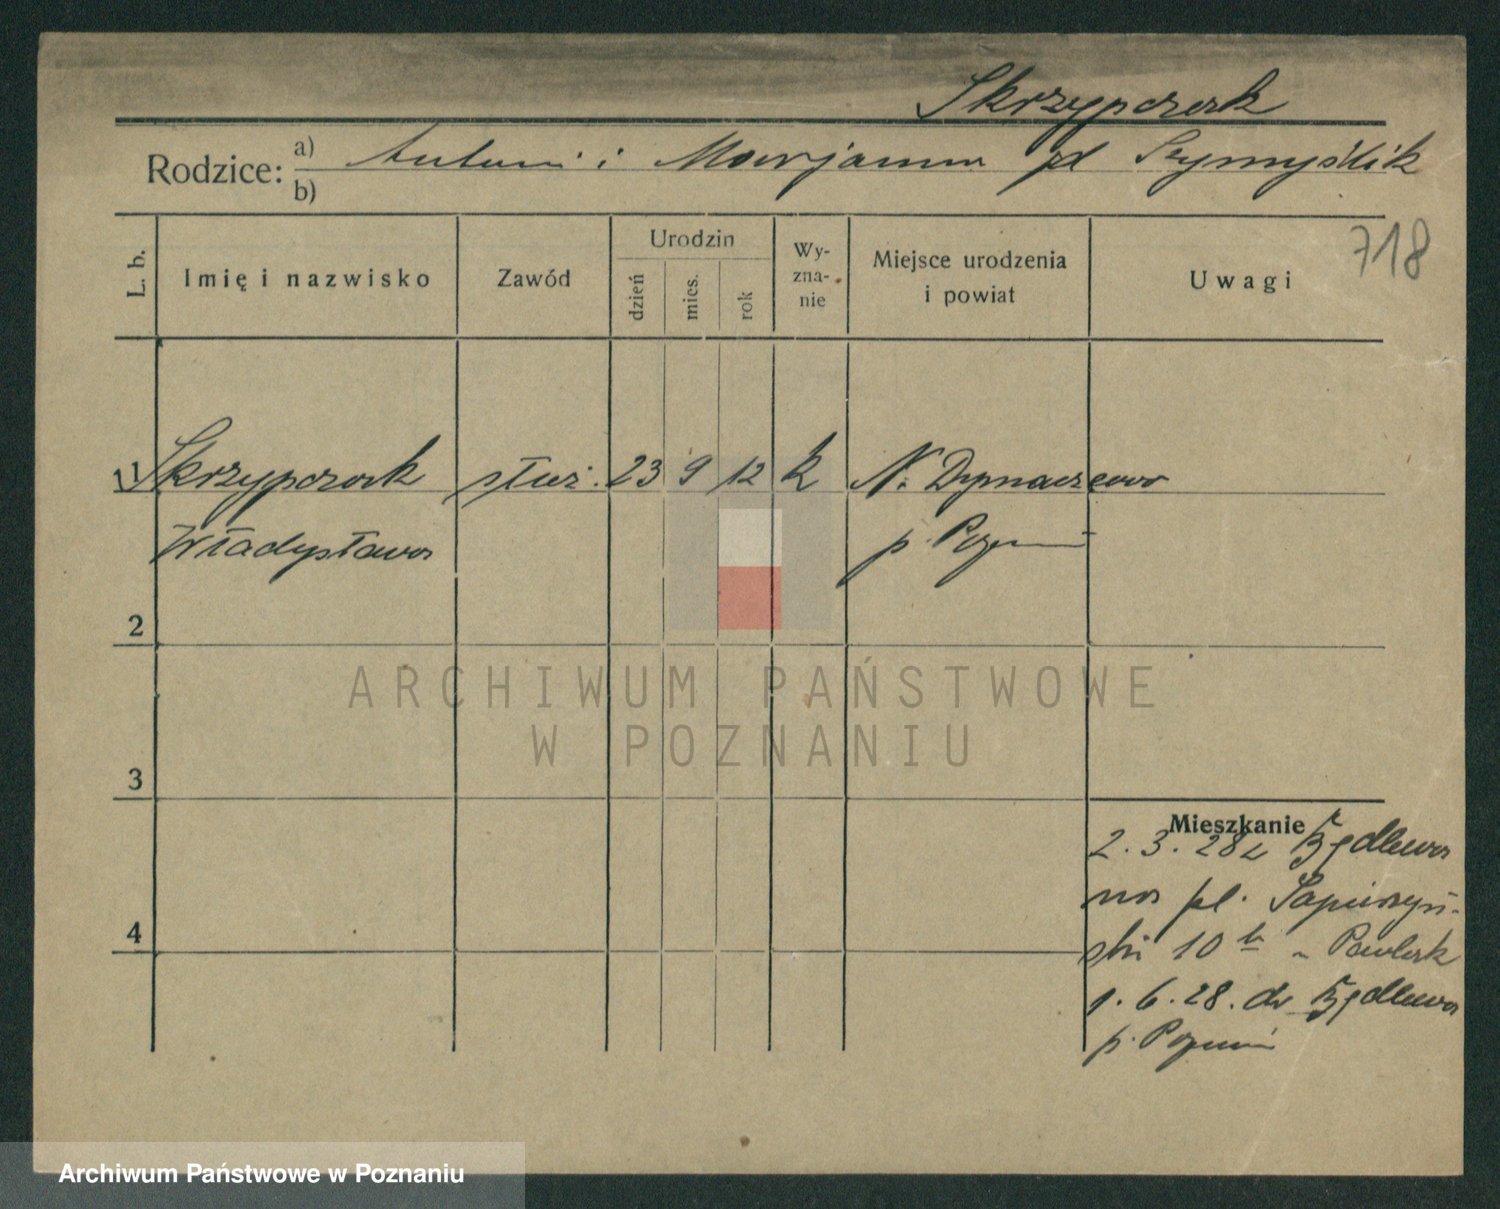 Skrzypczak
Rodzice: a) Antoni i Marjanna zd Szymyślik
b)
718
L. b.
Imię i nazwisko
Zawód
Urodzin
dzień
mies.
rok
Wy-
zna-
nie
Miejsce urodzenia
i powiat
Uwagi
1 Skrzypczak służ. 23 9 12 k N. Dymaczewo
Władysława p. Pozn
2
3
4
Mieszkanie
2. 3. 28 z Będlewa
na pl. Sapieżyń-
ski 10 b Pawlak
1. 6. 28. do Będlewa
p. Poznań
ARCHIWUM PAŃSTWOWE
W POZNANIU
Archiwum Państwowe w Poznaniu